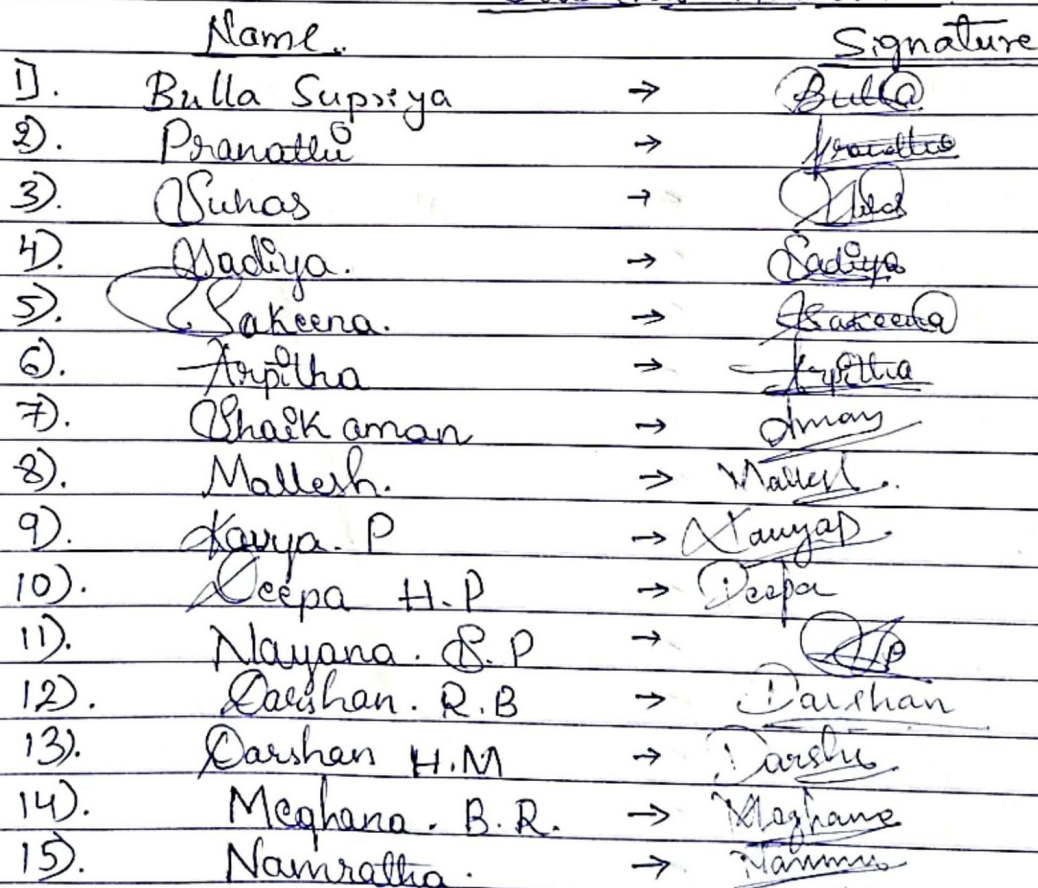 Name. Signature
1). Bulla Supriya → Bulla
2). Pranathi →
3). Suhas →
4). Sadiya. → Sadiya
5). Sakeena. → Sakeena
6). Arpitha → Arpitha
7). Shaik aman → Aman
8). Mallesh. → Mallesh.
9). Kavya. P → KavyaP.
10). Deepa H.P → Deepa
11). Nayana. S.P →
12). Darshan. R.B → Darshan
13). Darshan H.M → Darshu
14). Meghana. B.R. → Meghana
15). Namratha. →